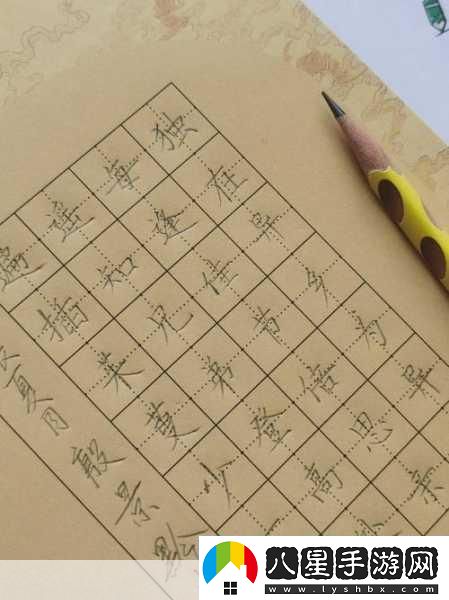 独在异乡为异
每逢佳节倍思亲
遥知兄弟登高
遍插茱萸少
夏月殷景
八星手游网
www.lyshbx.com